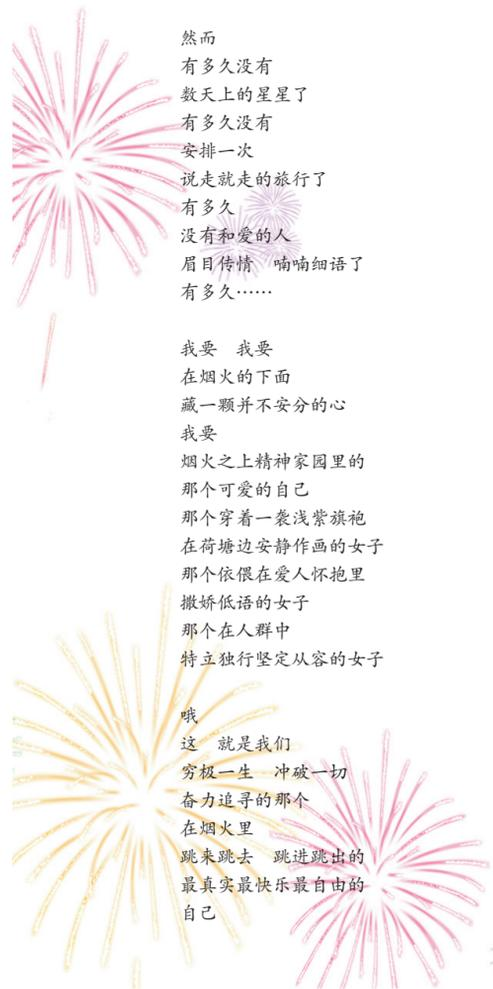 然而
有多久没有
数天上的星星了
有多久没有
安排一次
说走就走的旅行了
有多久
没有和爱的人
眉目传情　喃喃细语了
有多久……
我要　我要
在烟火的下面
藏一颗并不安分的心
我要
烟火之上精神家园里的
那个可爱的自己
那个穿着一袭浅紫旗袍
在荷塘边安静作画的女子
那个依偎在爱人怀抱里
撒娇低语的女子
那个在人群中
特立独行坚定从容的女子
哦
这　就是我们
穷极一生　冲破一切
奋力追寻的那个
在烟火里
跳来跳去　跳进跳出的
最真实最快乐最自由的
自己